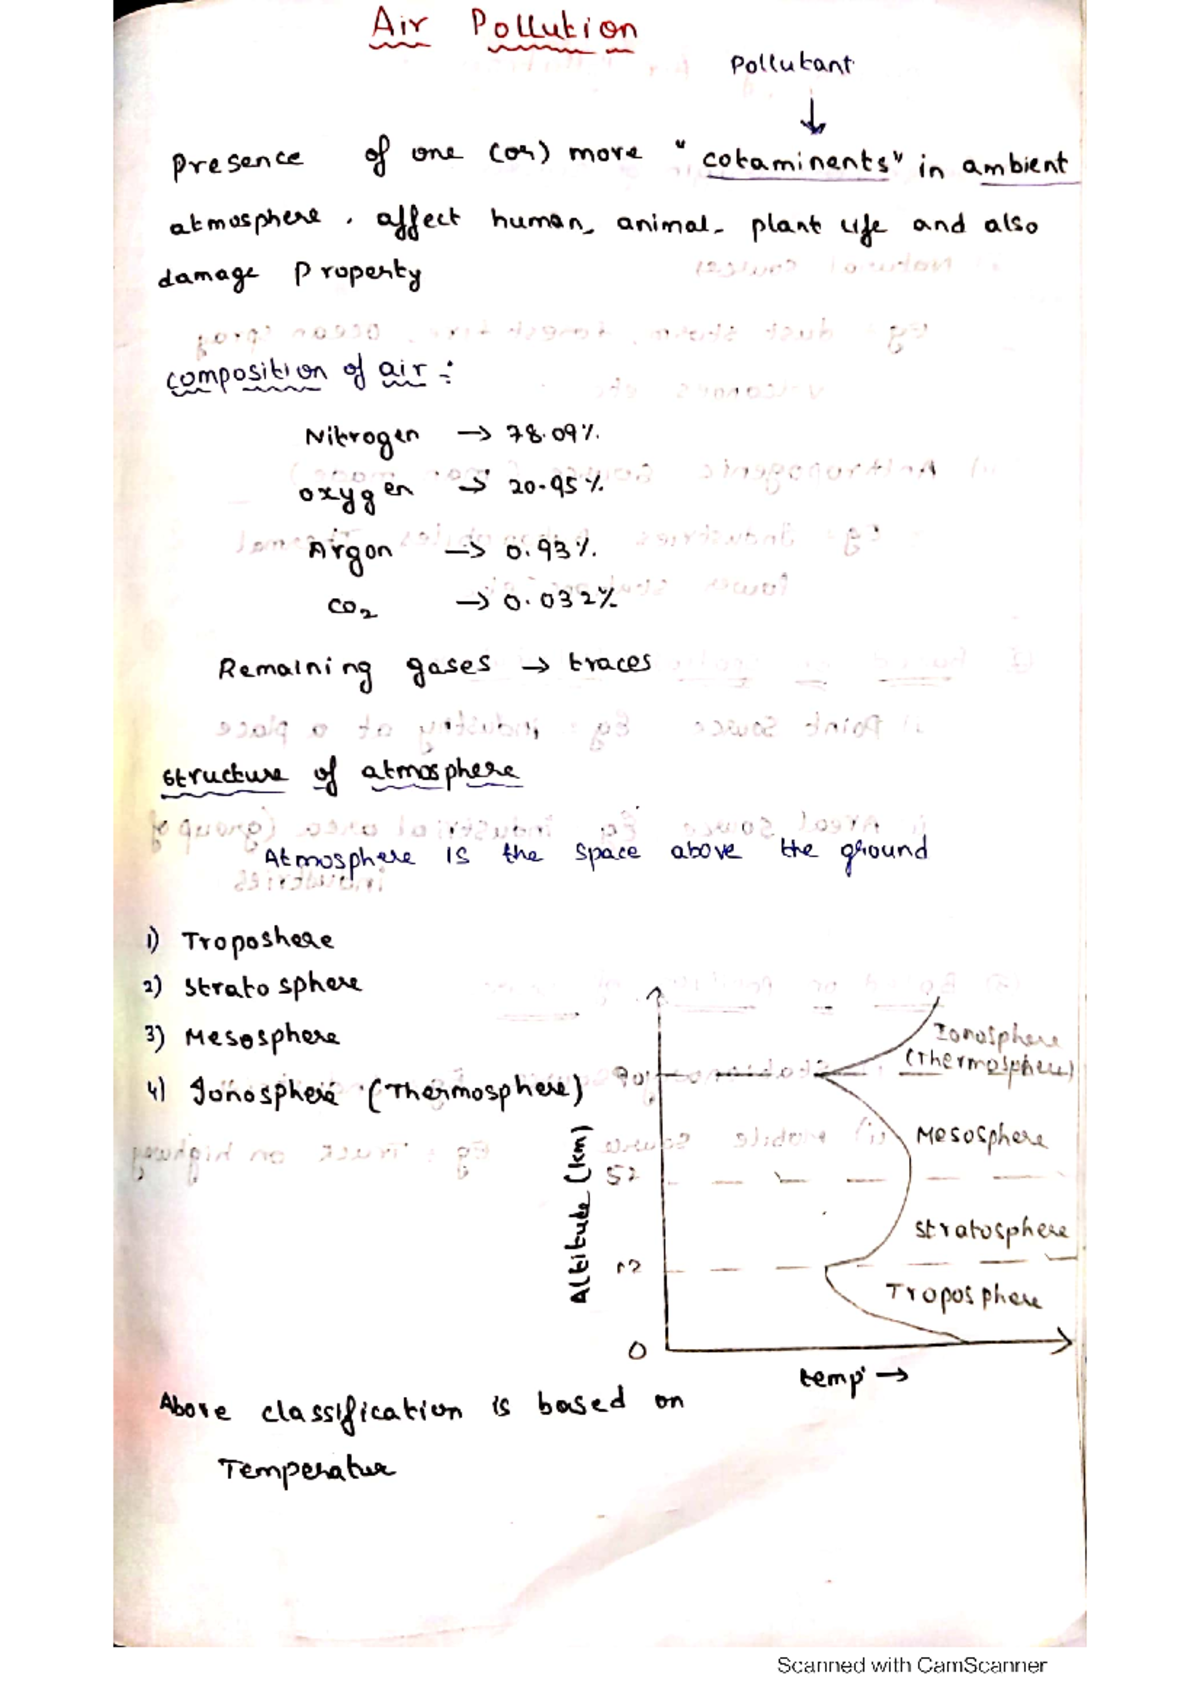 Air Pollution
Pollutant
↓
Presence of one (or) more "cotaminents" in ambient
atmosphere. affect human, animal, plant life and also
damage Property
composition of air :-
Nitrogen → 78.09%.
oxygen → 20.95%.
Argon → 0.93%.
CO2 → 0.032%
Remaining gases → traces
structure of atmosphere
Atmosphere is the space above the ground
1) Troposhere
2) stratosphere
3) Mesosphere
4) Ionosphere (Thermosphere)
Ionosphere
(Thermosphere)
90
Mesosphere
52
stratosphere
12
Troposphere
0
Altitude (km)
temp →
Above classification is based on
Temperatur
Scanned with CamScanner